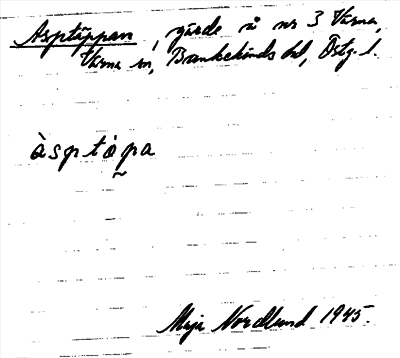 Asptäppan, gärde å nr 3 Värna,
Värna sn, Bankekinds hd, Östg. l.
àsptàpa
Maja Nordlund 1945.